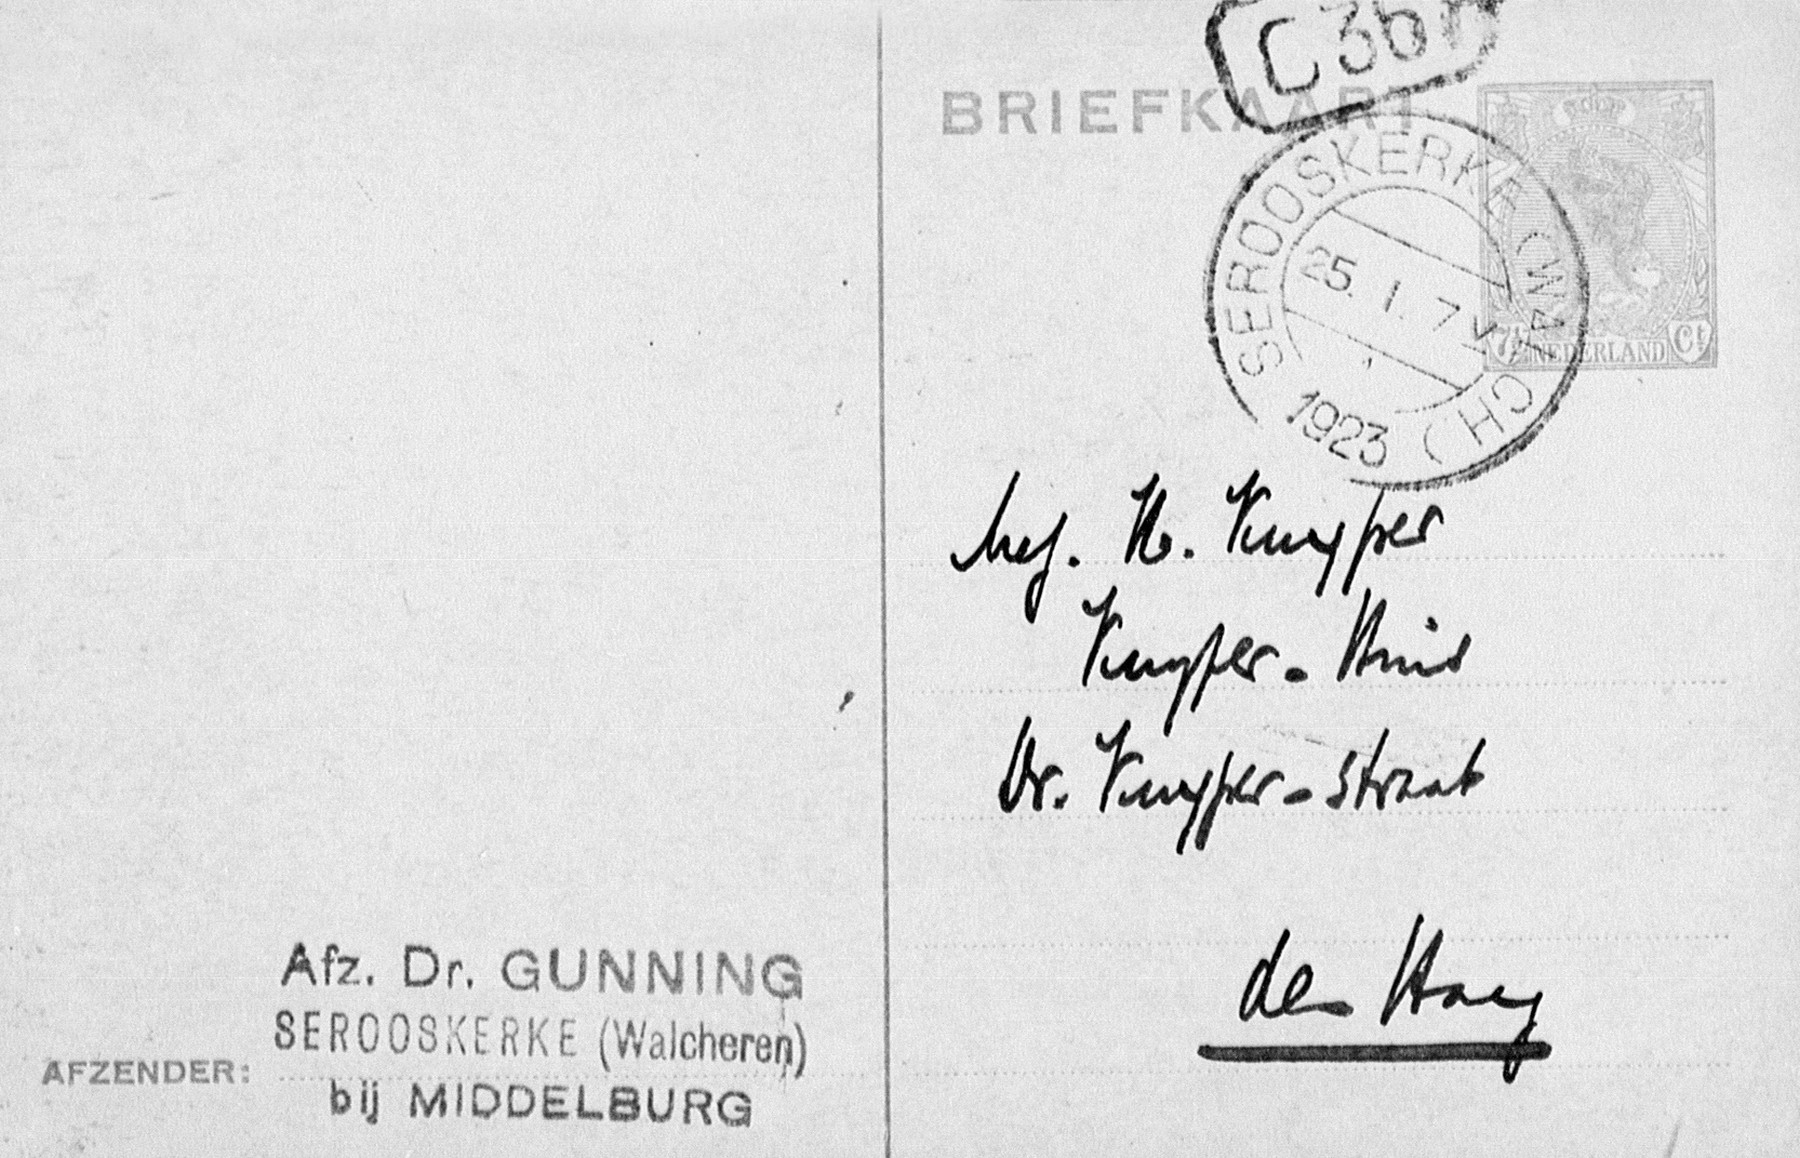 C36
BRIEFKAART
SEROOSKERKE (WALCH)
25. 1. 7 V
1923
7½ NEDERLAND Ct
Mej. H. Kuyper
Kuyper-Huis
Dr. Kuyper-straat
den Haag
Afz. Dr. GUNNING
SEROOSKERKE (Walcheren)
AFZENDER:
bij MIDDELBURG